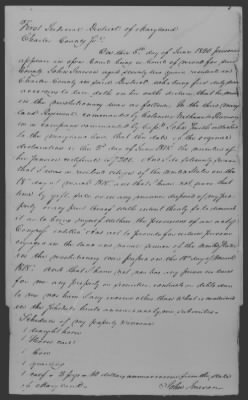 First Judicial District of Maryland
Charles County
On this 5th day of June 1820 personally
appears in open Court being a Court of record for said
County John aged seventy five years resident in
Charles County in said District who being first duly sworn
according to law doth on his oath declare that he served
in the revolutionary war as follows. In the third Mary
land Regiment commanded by Colonel Nathaniel Ramsey
in a company commanded by Capt. John Smith
to the pension law that the date of the original
declaration is the of June 1818 the number of
his pension certificate is 7201. And I do solemnly swear
that I was a resident citizen of the United States on the
18th day of March 1818, and that I have not since that
time by gift sale or in any manner disposed of my proper
ty or any part thereof with intent thereby so to diminish
it as to bring myself within the provisions of an act of
Congress entitled An act to provide for certain persons
engaged in the land and naval service of the United States
in the revolutionary war passed on the 18th day of March
1818. And that I have not nor has any person in trust
for me any property or securities contracts or debts due
to me nor have I any income other than what is contained
in the schedule hereto annexed and by me subscribed
Schedule of my property viz
1 horse
1
1 cow
1 yearling
1 calf
of Maryland.
John